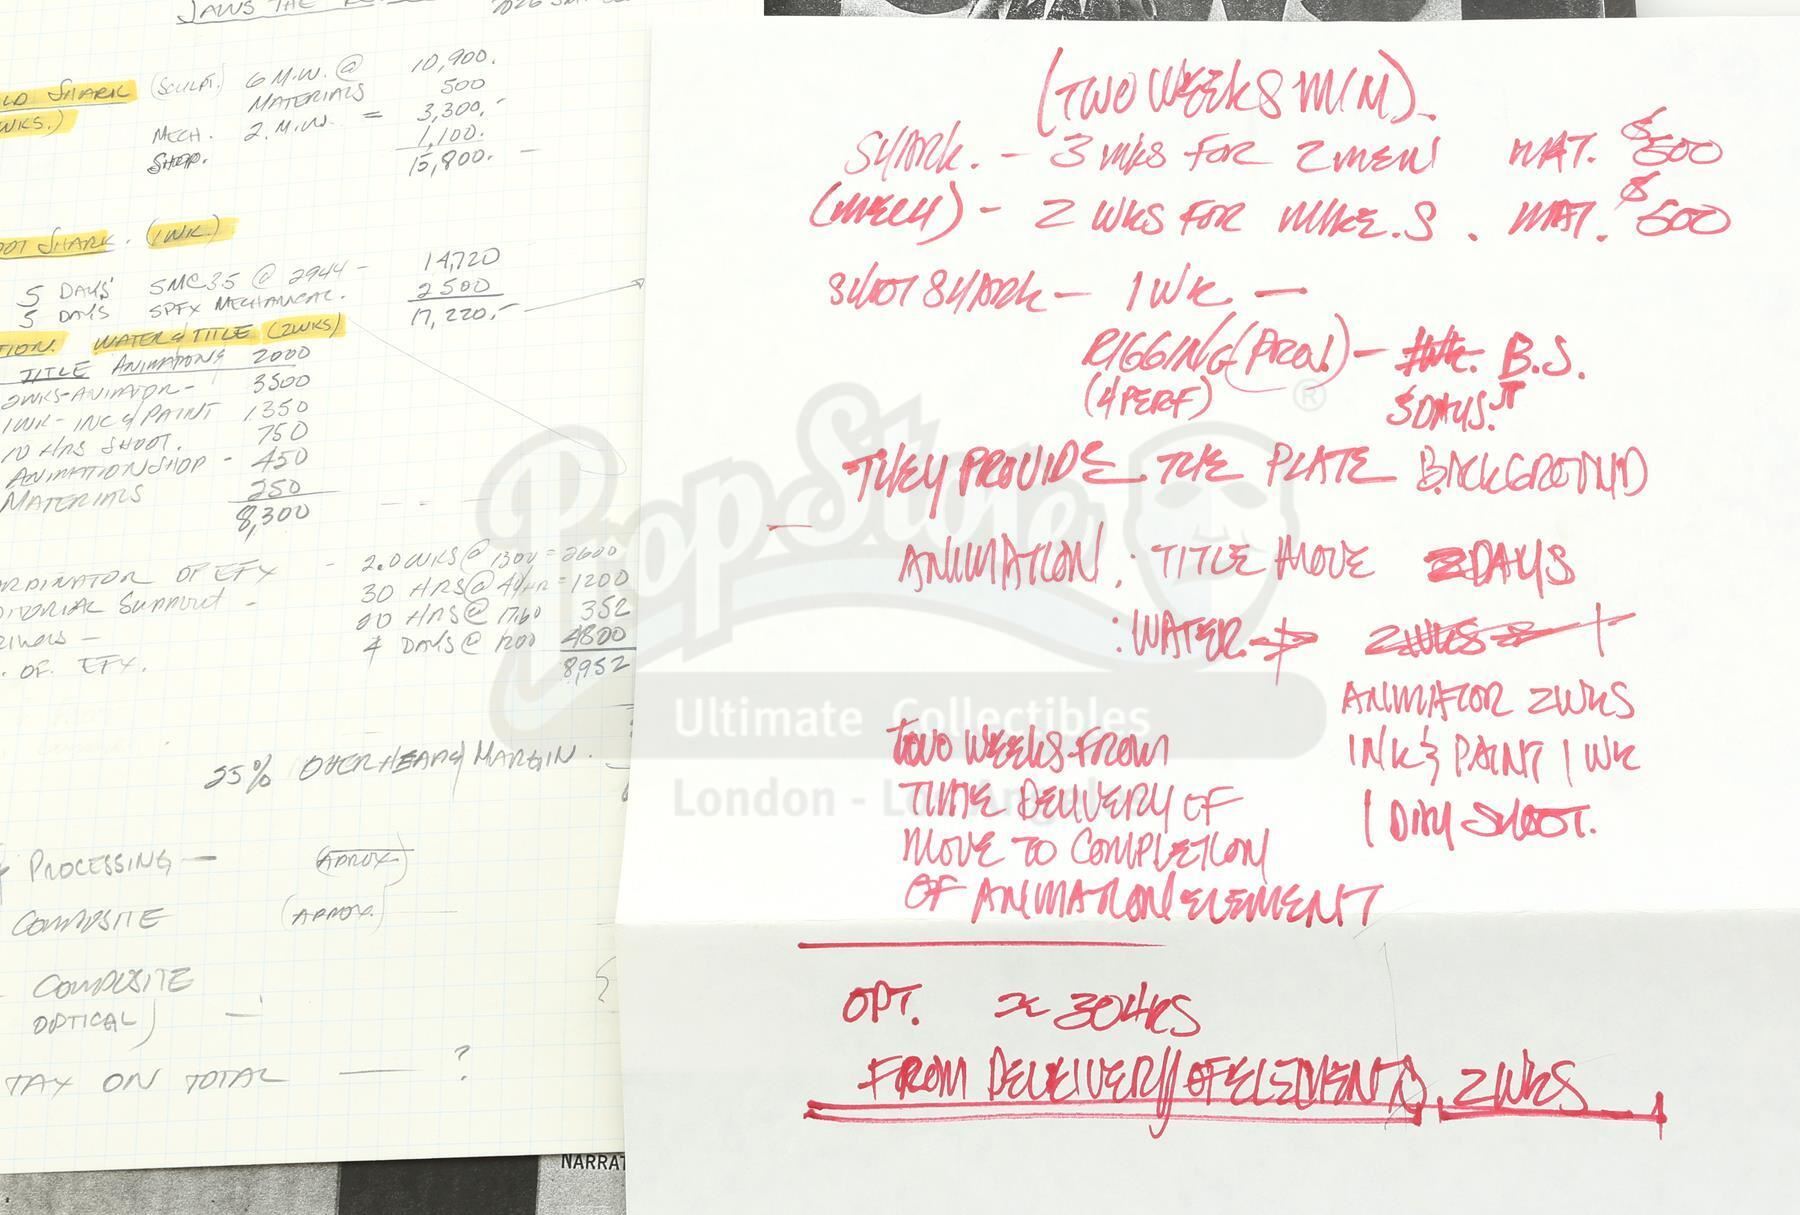 JAWS THE
LD SHARK (SCULPT.) 6 M.W. @ 10,900.
WKS.) MATERIALS 500
MECH. 2. M.W. = 3,300,-
SHOP. 1,100.
15,800. —
OOT SHARK. (1WK.)
5 DAYS' SMC35 @ 2944 - 14,720
5 DAYS SPFX MECHANICAL. 2500
17,220,-
TION. WATER & TITLE (2WKS)
TITLE ANIMATIONS 2000
2WKS-ANIMATOR- 3500
1WK-INC & PAINT 1350
10 HRS SHOOT. 750
ANIMATION SHOP - 450
MATERIALS 250
8,300
ORDINATOR OF EFX - 2.0 WKS @ 1300 = 2600
DITORIAL SUPPORT - 30 HRS @ = 1200
20 HRS @ 17.60 352
4 DAYS @ 1200 4800
. OF. EFX. 8,952
25% OVERHEAD/MARGIN.
PROCESSING — (APROX)
COMPOSITE (APROX.)
COMPOSITE
OPTICAL) —
TAX ON TOTAL — ?
NARRAT
(TWO WEEKS MIN).
SHARK. - 3 WKS FOR 2 MEN MAT. $500
(MECH) - 2 WKS FOR MIKE.S. MAT. $500
SHOT SHARK - 1 WK —
RIGGING (PROV.) - 1WK. B.S.
(4 PERF) 5 DAYS.
THEY PROVIDE THE PLATE BACKGROUND
ANIMATION: TITLE MOVE 2 DAYS
: WATER → 2WKS
ANIMATOR 2WKS
INK & PAINT 1 WK
1 DAY SHOOT.
TWO WEEKS FROM
TIME DELIVERY OF
MOVE TO COMPLETION
OF ANIMATION ELEMENT
OPT. ≈ 30HRS
FROM DELIVERY OF ELEMENTS. 2WKS
PropStore
®
Ultimate Collectibles
London - Los Angeles